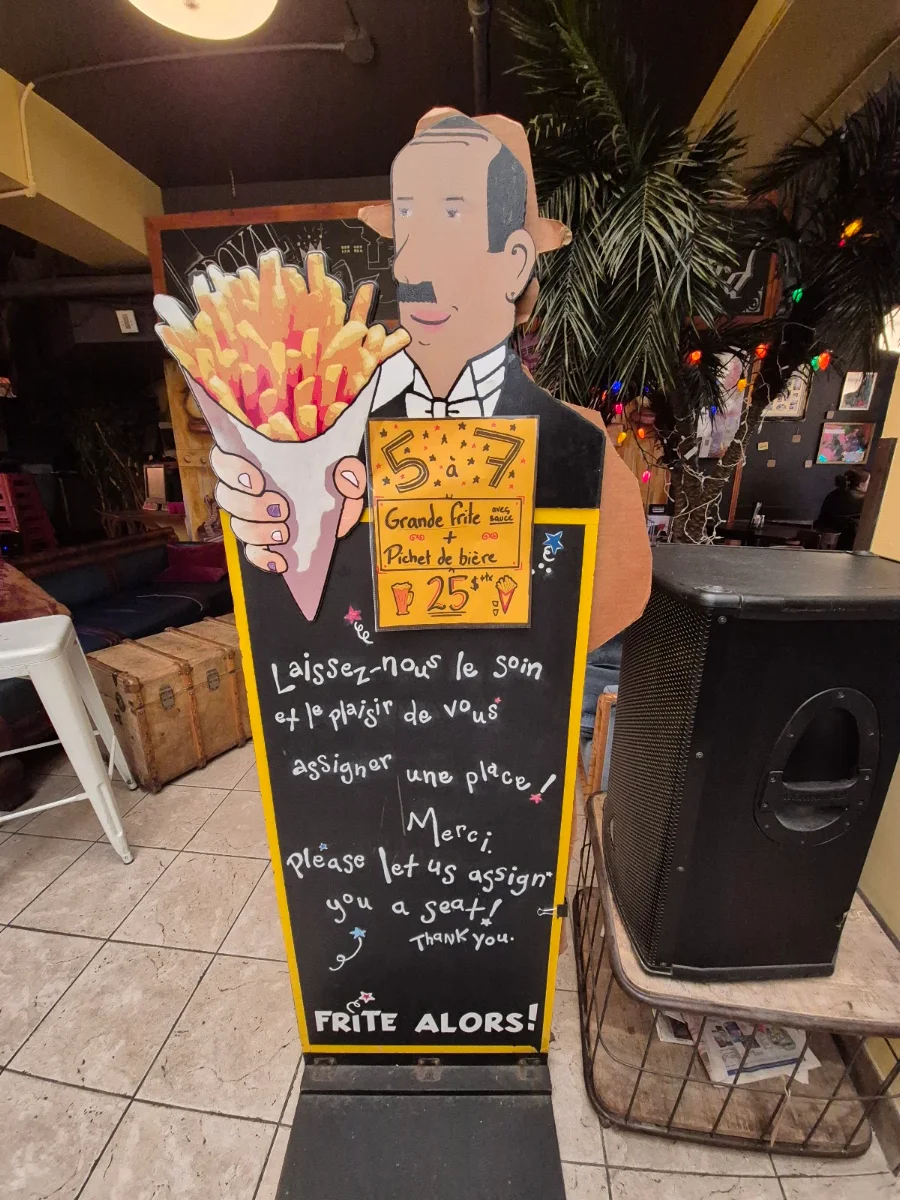 5 à 7
Grande frite avec sauce
+
Pichet de bière
25$+tx
Laissez-nous le soin
et le plaisir de vous
assigner une place!
Merci.
Please let us assign
you a seat!
Thank you.
FRITE ALORS!